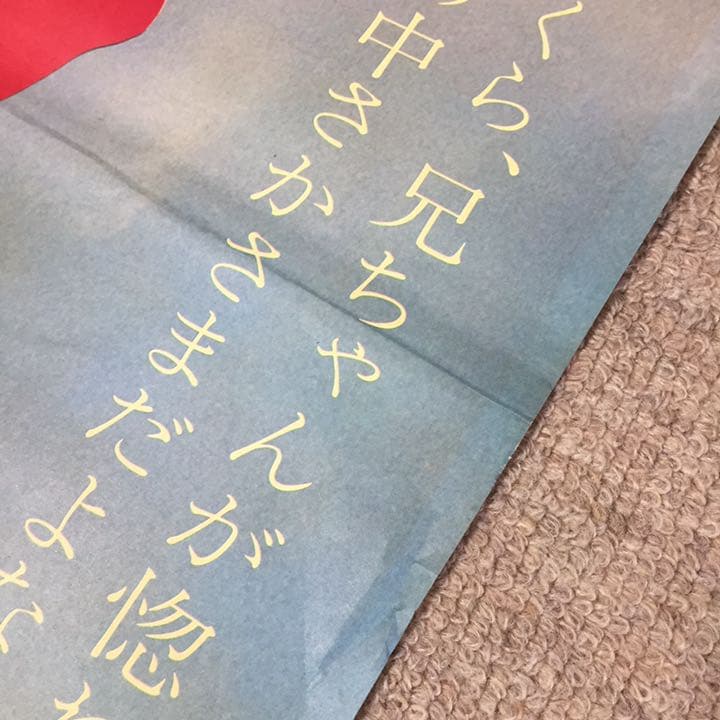 くら、兄ちゃんが惚
中さかさまだよな